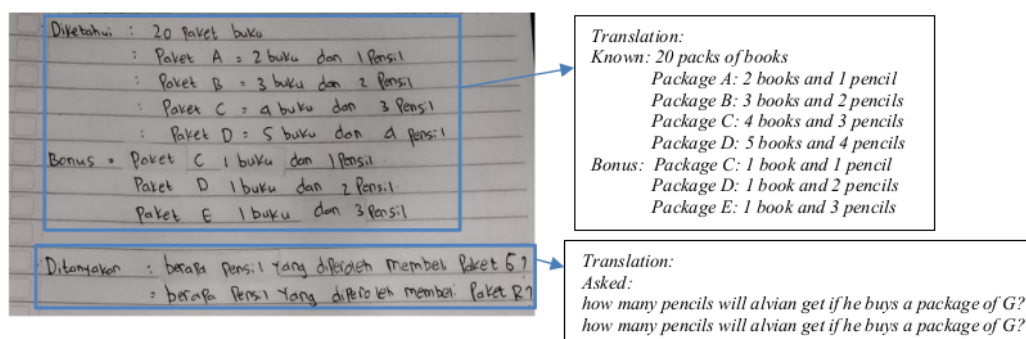 Diketahui : 20 Paket buku
: Paket A = 2 buku dan 1 Pensil
: Paket B = 3 buku dan 2 Pensil
: Paket C = 4 buku dan 3 Pensil
: Paket D = 5 buku dan 4 Pensil
Bonus = Paket C 1 buku dan 1 Pensil.
Paket D 1 buku dan 2 Pensil.
Paket E 1 buku dan 3 Pensil
Ditanyakan : berapa pensil yang diperoleh membeli Paket G?
: berapa Pensil yang diperoleh membeli Paket R?
Translation:
Known: 20 packs of books
Package A: 2 books and 1 pencil
Package B: 3 books and 2 pencils
Package C: 4 books and 3 pencils
Package D: 5 books and 4 pencils
Bonus: Package C: 1 book and 1 pencil
Package D: 1 book and 2 pencils
Package E: 1 book and 3 pencils
Translation:
Asked:
how many pencils will alvian get if he buys a package of G?
how many pencils will alvian get if he buys a package of G?